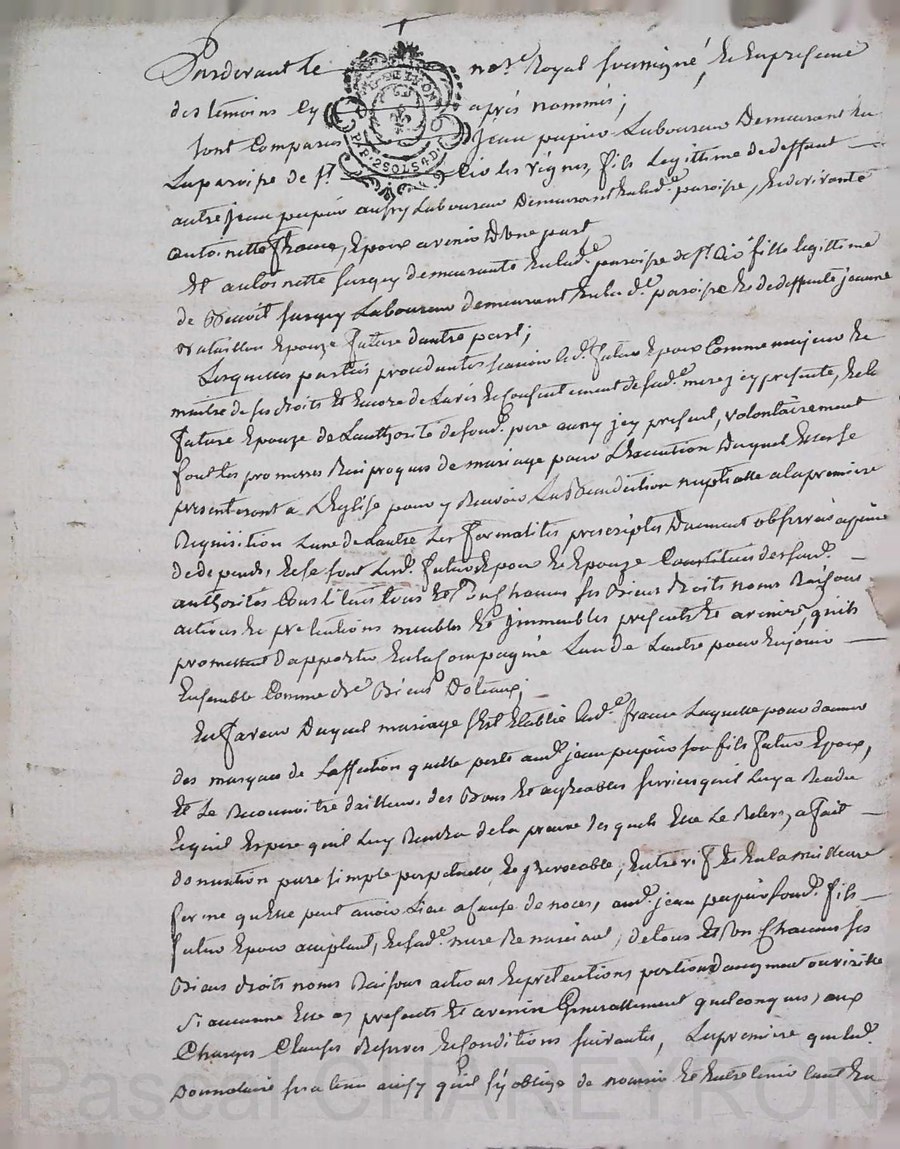 Pardevant le not.e Royal soussigné, et en presence
des temoins cy après nommés;
GN. DE LYON
PAP. 2 SOLS 4 D.
sont comparus Jean pupier Laboureur Demeurant en
La paroisse de st. Cir les vignes, fils Legittime de deffunt
autre Jean pupier aussy Laboureur Demeurant en lad.e paroisse, et de vivante
antoinette france, Epoux avenir D'une part
Et antoinette surgey demeurante en lad.e paroisse de st. Cir fille legittime
de Benoit surgey Laboureur demeurant en lad.e paroisse et de deffunte jeanne
Epouze future d'autre part;
Lesquelles parties procedantes scavoir led. futur Epoux Comme majeur et
maitre de ses droits Et encore de L'avis et consentement de sad.e mere jcy presente, et la
future Epouze de L'authorité de sond. pere aussy jcy present, volontairement
font les promesses Reciproques de mariage pour L'execution Duquel Elles se
presenteront a L'eglise pour y Recevoir La Benediction nuptialle a la premiere
Requisition L'une de L'autre Les formalités prescriptes Duement observées a peine
de depends, et se sont Lesd. futur Epoux et Epouze Constitués desd.
authorités Constitués tous Et Uns Chacuns ses Biens Droits noms Raisons
actions et pretentions meubles Et jmmeubles presents Et avenirs, qu'ils
promettent d'apporter en la Compagnie L'un de L'autre pour En jouir
Ensemble Comme de Biens Dotaux;
En faveur Duquel mariage s'Est Etablie lad.e france Laquelle pour donner
des marques de L'affection qu'elle porte aud. jean pupier son fils futur Epoux,
Et Le Reconnoitre d'ailleurs des Bons Et agreables services qu'il Luy a Rendu
Et qu'il Espere qu'il Luy Rendra de la preuve desquels Elle Le Releve, a fait
donnation pure simple perpetuelle, et jrrevocable, Entre vif Et En la meilleure
forme qu'Elle peut avoir Lieu a cause de noces, aud. jean pupier sond. fils
futur Epoux acceptant, et sad.e mere Remerciant, de tous Et Uns Chacuns ses
Biens droits noms Raisons actions et pretentions portion d'augment ou virille
si aucune Elle a, presents Et avenirs Generallement quelconques, aux
Charges Clauses Reserves et conditions suivantes, La premiere que led.
Donnataire sera tenu ainsy qu'il s'y oblige de nourrir Et Entretenir tant En
Pascal CHAREYRON